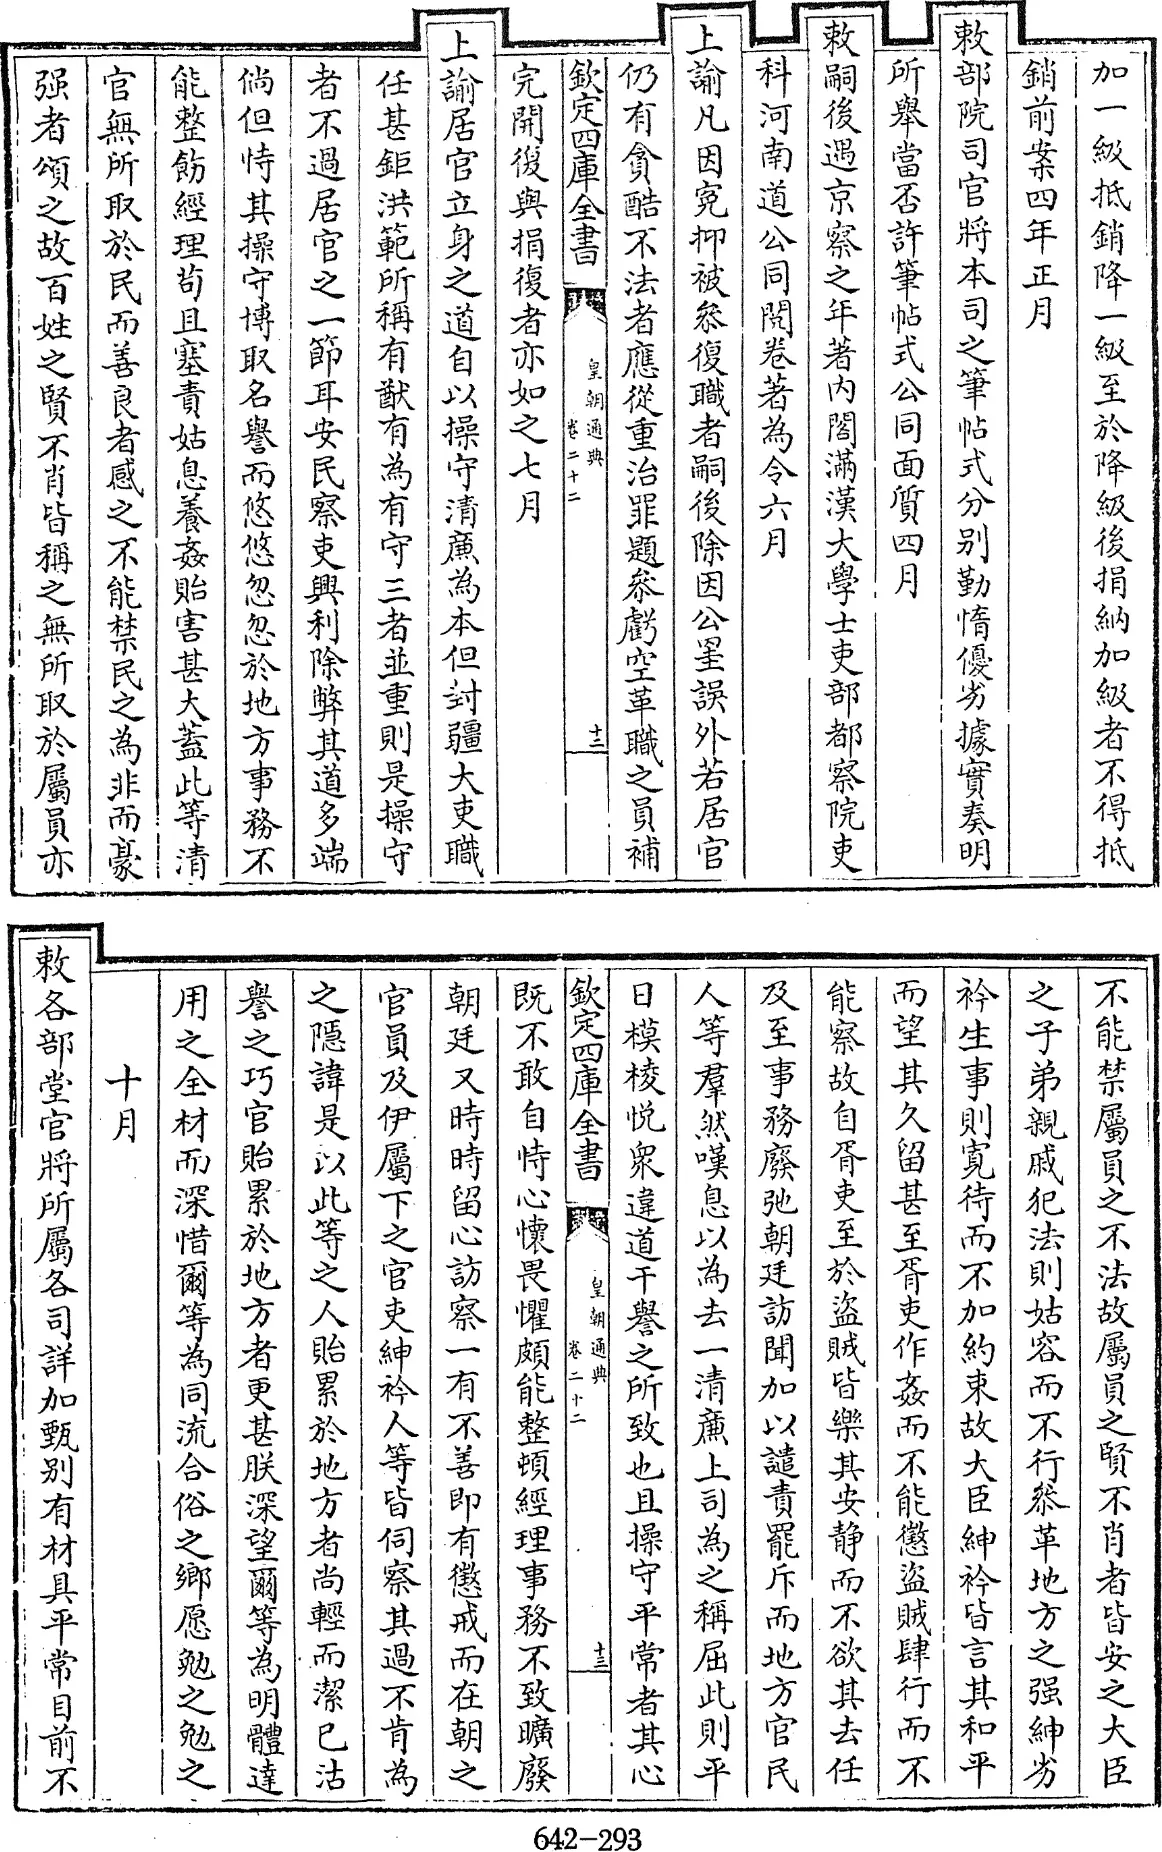 加一級抵銷降一級至於降級後捐納加級者不得抵
銷前案四年正月
敕部院司官將本司之筆帖式分别勤惰優劣據實奏明
所舉當否許筆帖式公同面質四月
敕嗣後遇京察之年著内閣滿漢大學士吏部都察院吏
科河南道公同閱卷著為令六月
上諭凡因寃抑被叅復職者嗣後除因公罣誤外若居官
仍有貪酷不法者應從重治罪題叅虧空革職之員補
欽定四庫全書
皇朝通典
卷二十二
十二
完開復與捐復者亦如之七月
上諭居官立身之道自以操守清廉為本但封疆大吏職
任甚鉅洪範所稱有猷有為有守三者並重則是操守
者不過居官之一節耳安民察吏興利除弊其道多端
倘但恃其操守博取名譽而悠悠忽忽於地方事務不
能整飭經理苟且塞責姑息養姦貽害甚大蓋此等清
官無所取於民而善良者感之不能禁民之為非而豪
强者頌之故百姓之賢不肖皆稱之無所取於屬員亦
不能禁屬員之不法故屬員之賢不肖者皆安之大臣
之子弟親戚犯法則姑容而不行叅革地方之强紳劣
衿生事則寛待而不加約束故大臣紳衿皆言其和平
而望其久留甚至胥吏作姦而不能懲盜賊肆行而不
能察故自胥吏至於盜賊皆樂其安静而不欲其去任
及至事務廢弛朝廷訪聞加以譴責罷斥而地方官民
人等羣然嘆息以為去一清廉上司為之稱屈此則平
日模棱悦衆違道干譽之所致也且操守平常者其心
欽定四庫全書
皇朝通典
卷二十二
十三
既不敢自恃心懷畏懼頗能整頓經理事務不致曠廢
朝廷又時時留心訪察一有不善即有懲戒而在朝之
官員及伊屬下之官吏紳衿人等皆伺察其過不肯為
之隱諱是以此等之人貽累於地方者尚輕而潔已沽
譽之巧官貽累於地方者更甚朕深望爾等為明體達
用之全材而深惜爾等為同流合俗之鄉愿勉之勉之
十月
敕各部堂官將所屬各司詳加甄别有材具平常目前不
642-293